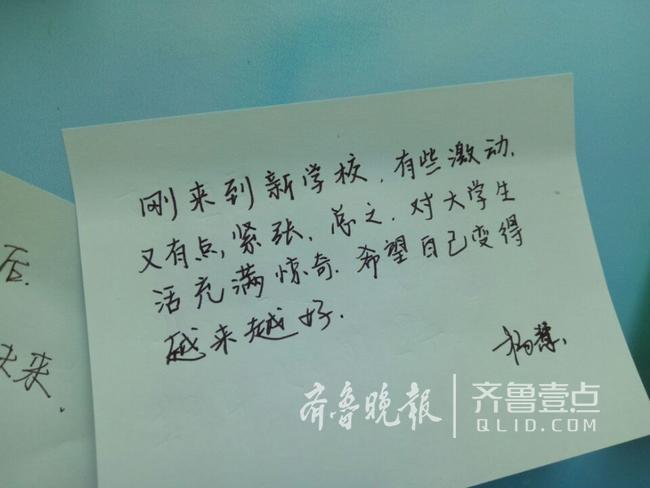 刚来到新学校,有些激动,
又有点紧张,总之,对大学生
活充满惊奇.希望自己变得
越来越好.
杨慧.
后.
未来.
齐鲁晚报 齐鲁壹点
QLID.COM